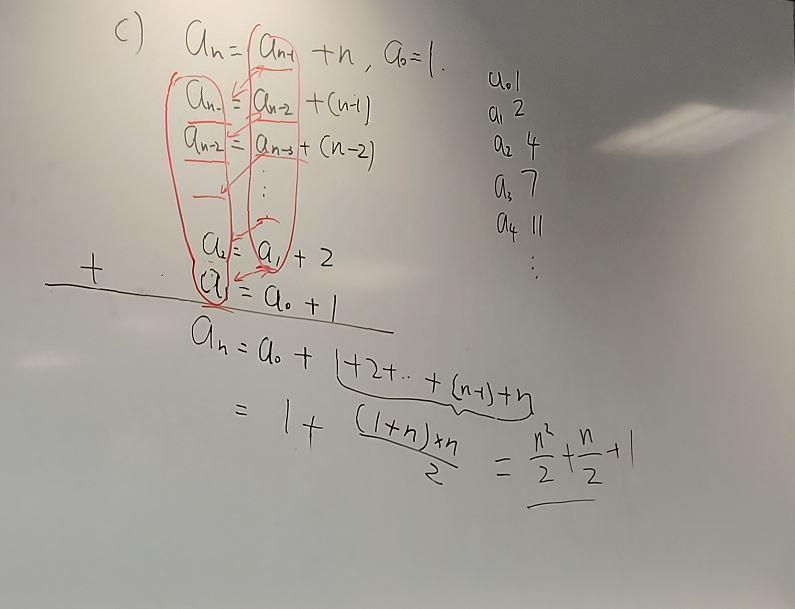 c) aₙ = aₙ₋₁ + n, a₀ = 1.
aₙ₋ = aₙ₋₂ + (n-1)
aₙ₋₂ = aₙ₋₃ + (n-2)
⋮
a₂ = a₁ + 2
+ a₁ = a₀ + 1
aₙ = a₀ + 1+2+.. + (n-1)+n
= 1 + (1+n)×n / 2 = n²/2 + n/2 + 1
a₀ 1
a₁ 2
a₂ 4
a₃ 7
a₄ 11
⋮